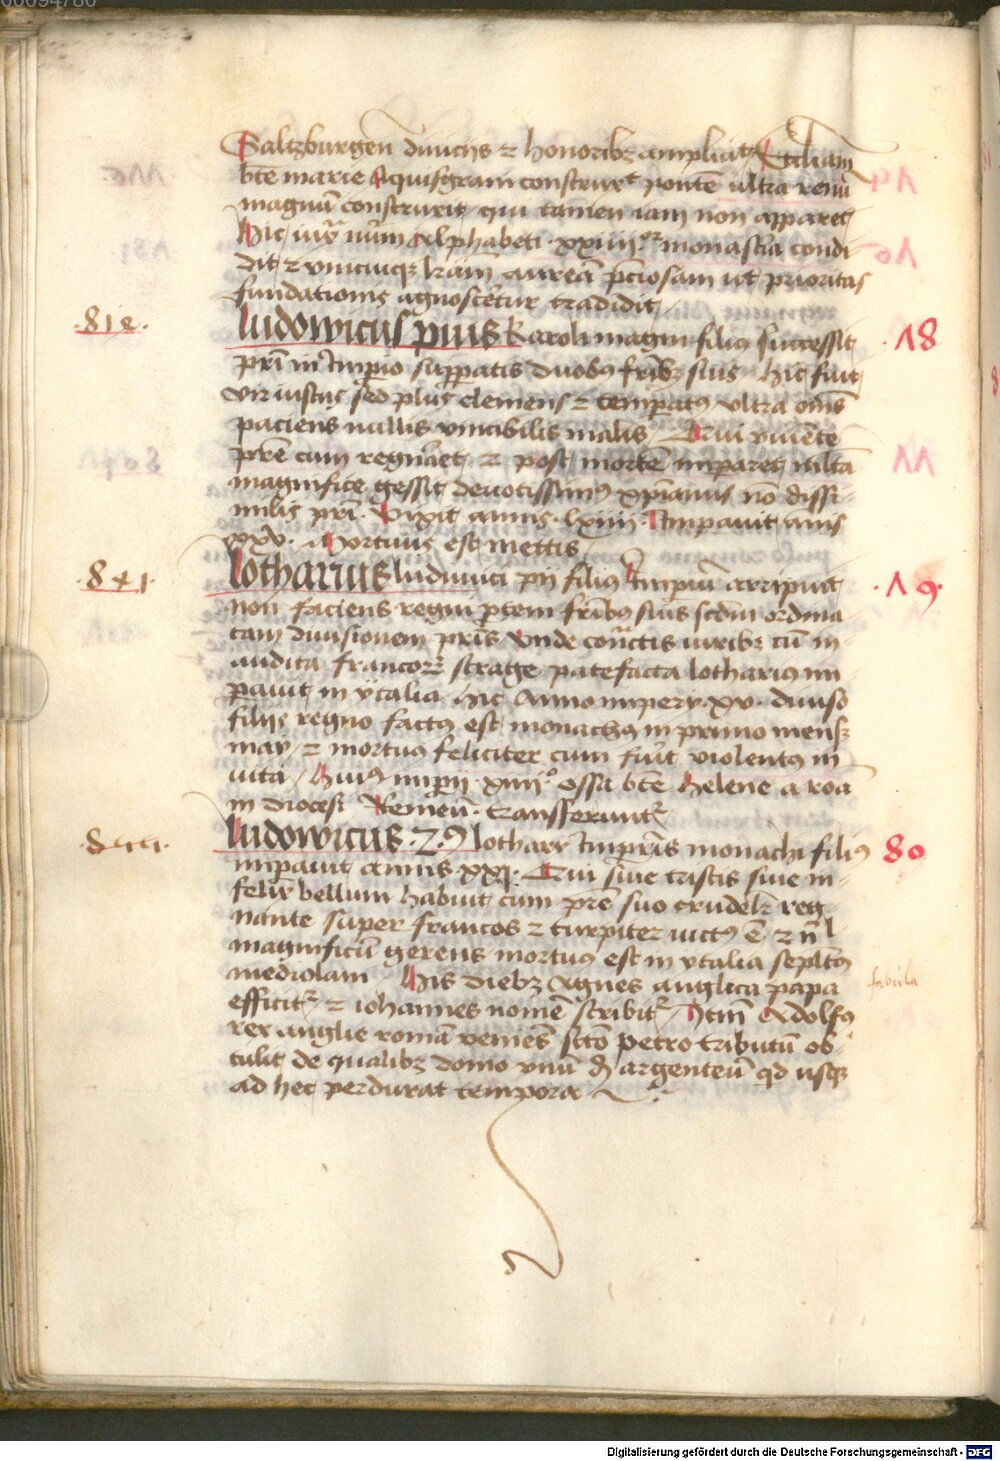 Saltzburgen̄ diuicijs ⁊ honoribꝫ ampliauit Eccliam
bte marie Aquisgrani construxt pontē ultra renū
magnū construxit qui tamen iam non apparet
Hic iux̄ nūm Alphabeti xxiiij monast̄ia condi
dit ⁊ vnicuiqꝫ lrām aureā p̄ciosam ut prioritas
fundationis agnosceret̄ur tradidit
.81e. ludowicus pius Karoli magni filiꝰ successit .18
pr̄i in Imp̄io supp̄atis duobus fr̄ibꝫ suis hic fuit
vir iustus sed plus clemens ⁊ temp̄atꝰ vltra om̄s
paciens nullis vincibilis malis Qui viuente
pr̄e cum regnaret ⁊ post mortē imparet multa
magnifice gessit deuotissimꝰ xp̄ianus nō dissi-
milis pr̄i. Vixit annis lxiiij Imperauit anis
xxv. Mortuus est mettis
.841. lotharius ludouici pij filiꝰ Impiū arripuit .19.
non faciens regni ptem fr̄ibus suis scdm̄ ordina
tam diuisionem pr̄is vnde coniūctis viribꝫ cū in-
audita francorꝝ strage patefacta lotharius im
pauit in ytalia hic Anno impery xv. diuiso
filijs regno factꝰ est monachꝰ in primo mensꝫ
may ⁊ mortuꝰ feliciter cum fuit violentꝰ in
vita Huiꝰ impij xiiijº ossa bte Helene a roā
in diocesi Remen̄. transferuntr̄
.844. ludowicus .2.ꝰ lothary Impr̄is monachi filiꝰ 80
impauit annis xxj. Qui siue tristis siue in-
felix bellum habuit cum pr̄e suo crudelr̄ reg
nante super francos ⁊ turpiter victꝰ ē ⁊ nl
magnificū gerens mortuus est in ytalia sepltꝰ
mediolani His diebꝫ Agnes anglica papa
fabula
efficitr̄ ⁊ iohannes nomē scribitr̄ Itm̄ Adolfꝰ
rex anglie romā veniēs scto petro tributū ob-
tulit de qualibꝫ domo vnū d̄ argenteū qd usqꝫ
ad hec perdurat tempora
Digitalisierung gefördert durch die Deutsche Forschungsgemeinschaft - DFG